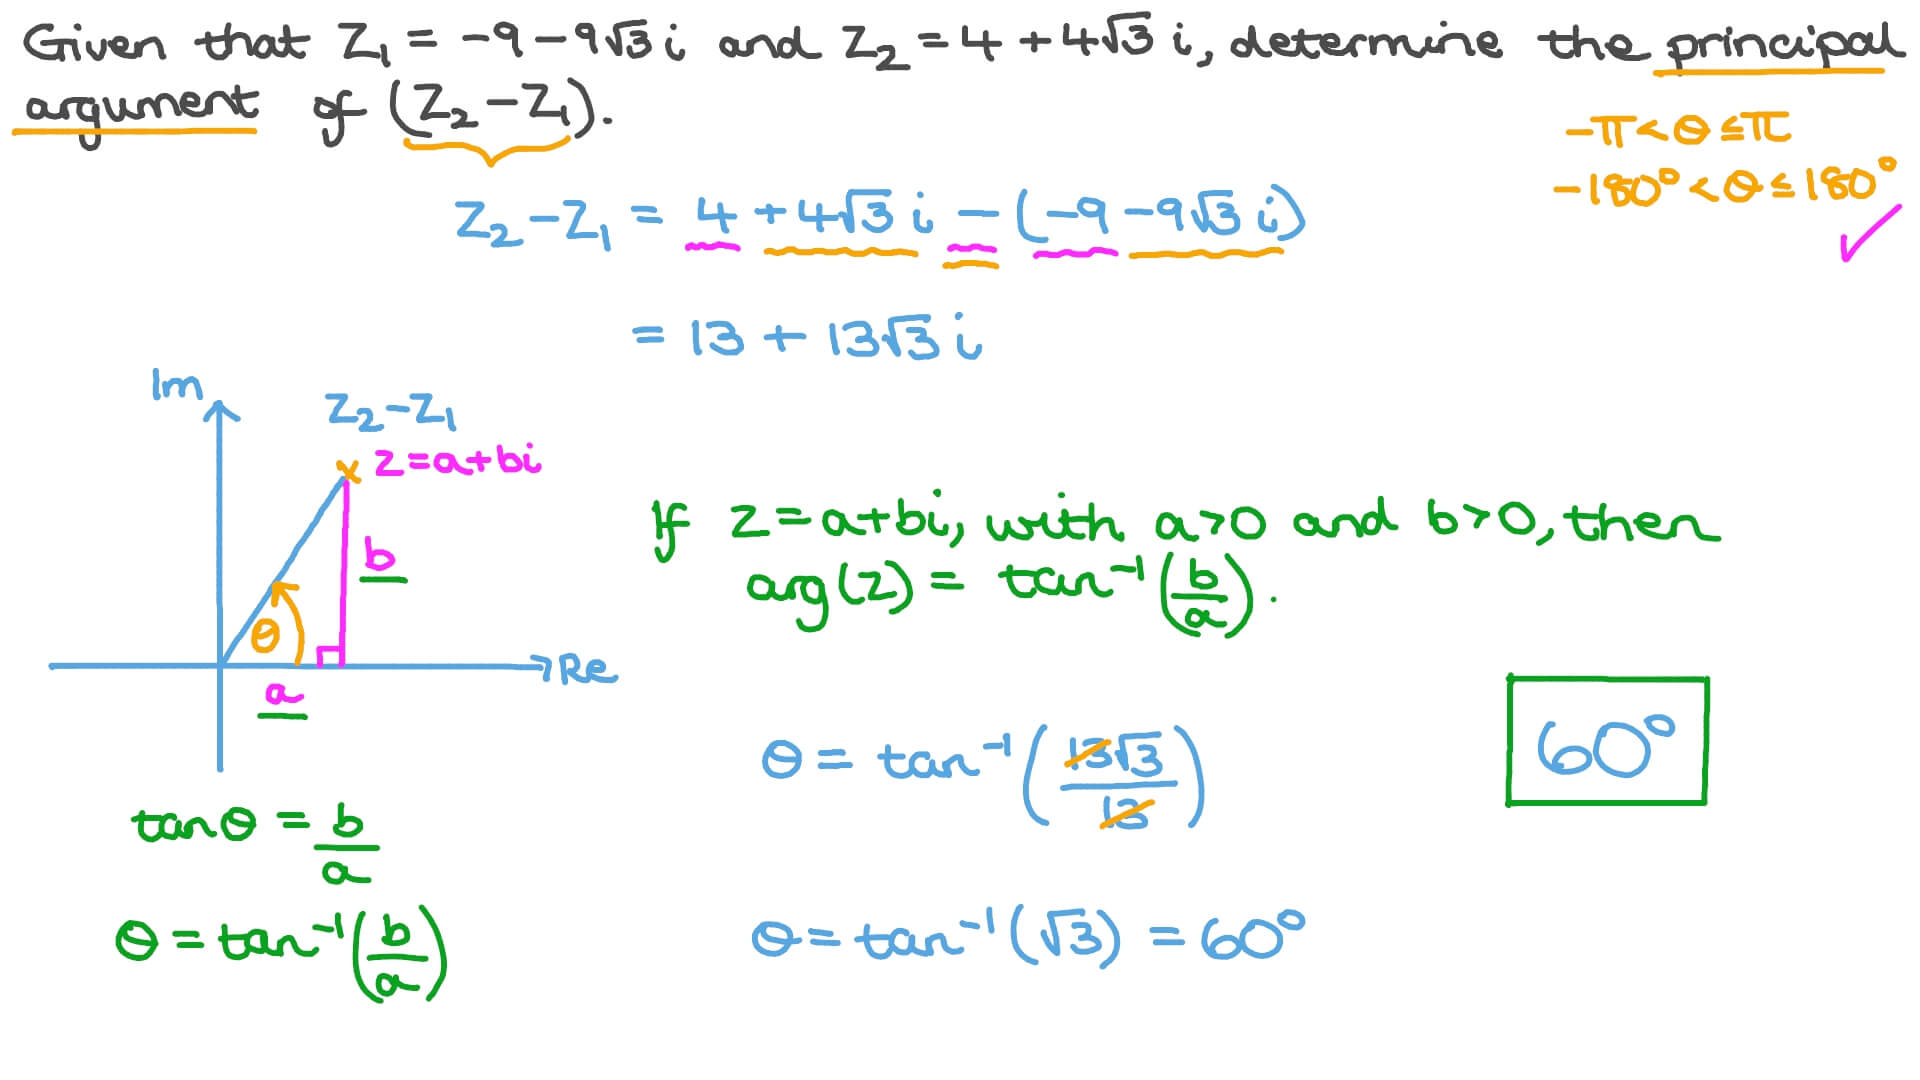 Given that Z₁ = -9-9√3 i and Z₂ = 4 + 4√3 i, determine the principal
argument of (Z₂-Z₁).
-π<θ≤π
-180°<θ≤180°
Z₂-Z₁ = 4 + 4√3 i - (-9-9√3 i)
= 13 + 13√3 i
Im
Z₂-Z₁
z=a+bi
b
θ
a
Re
If z=a+bi, with a>0 and b>0, then
arg(z) = tan⁻¹(b/a).
θ = tan⁻¹(13√3/13)
60°
tanθ = b/a
θ = tan⁻¹(b/a)
θ = tan⁻¹(√3) = 60°